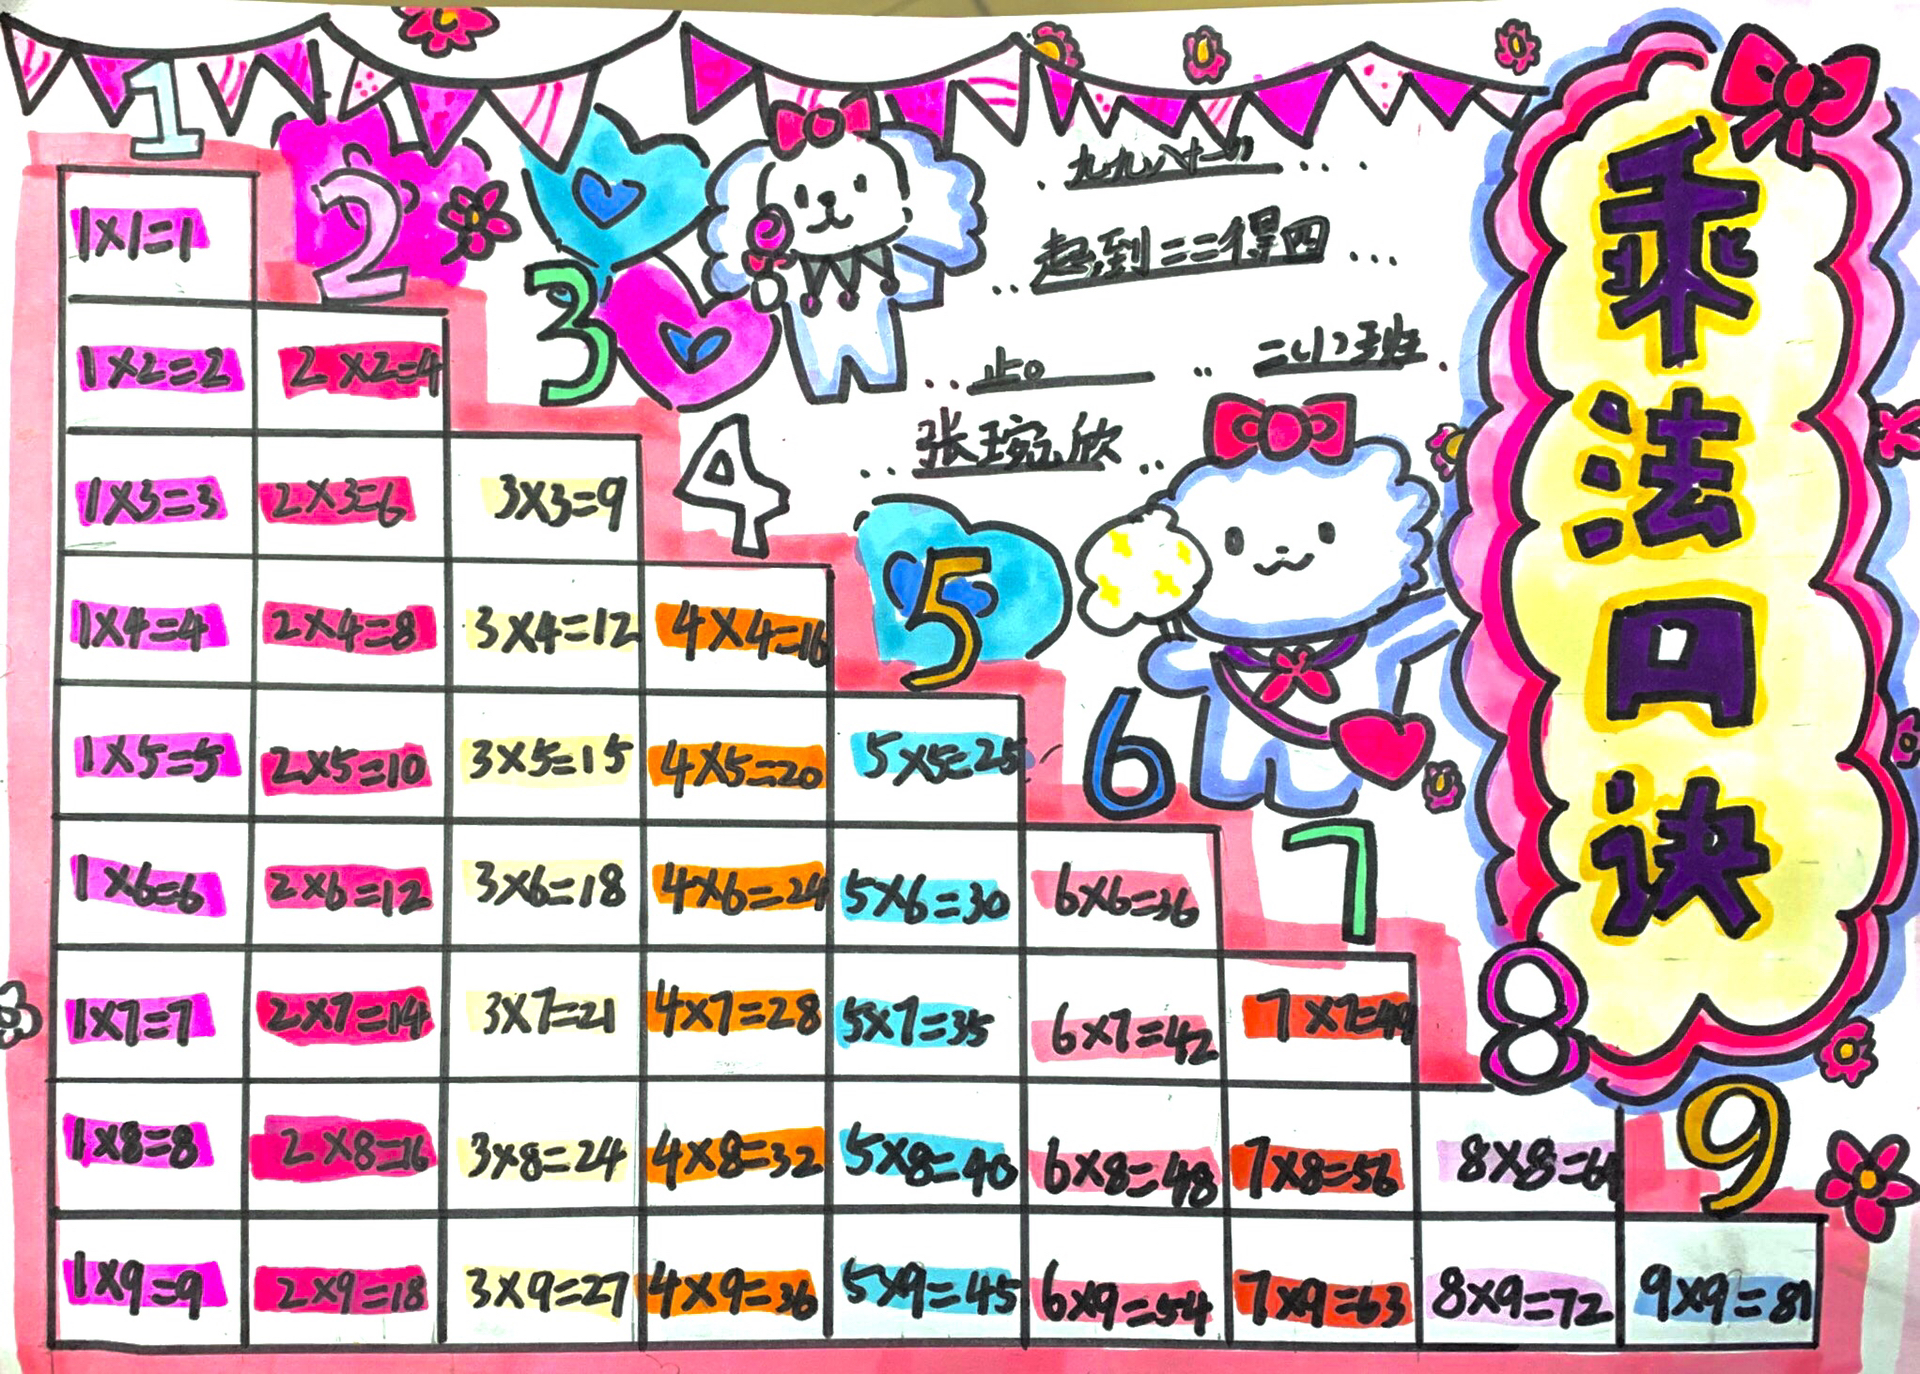 乘法口诀
九九八十一
起到二二得四
止。 二(1)班
张琬欣
1 2 3 4 5 6 7 8 9
1×1=1
1×2=2 2×2=4
1×3=3 2×3=6 3×3=9
1×4=4 2×4=8 3×4=12 4×4=16
1×5=5 2×5=10 3×5=15 4×5=20 5×5=25
1×6=6 2×6=12 3×6=18 4×6=24 5×6=30 6×6=36
1×7=7 2×7=14 3×7=21 4×7=28 5×7=35 6×7=42 7×7=49
1×8=8 2×8=16 3×8=24 4×8=32 5×8=40 6×8=48 7×8=56 8×8=64
1×9=9 2×9=18 3×9=27 4×9=36 5×9=45 6×9=54 7×9=63 8×9=72 9×9=81